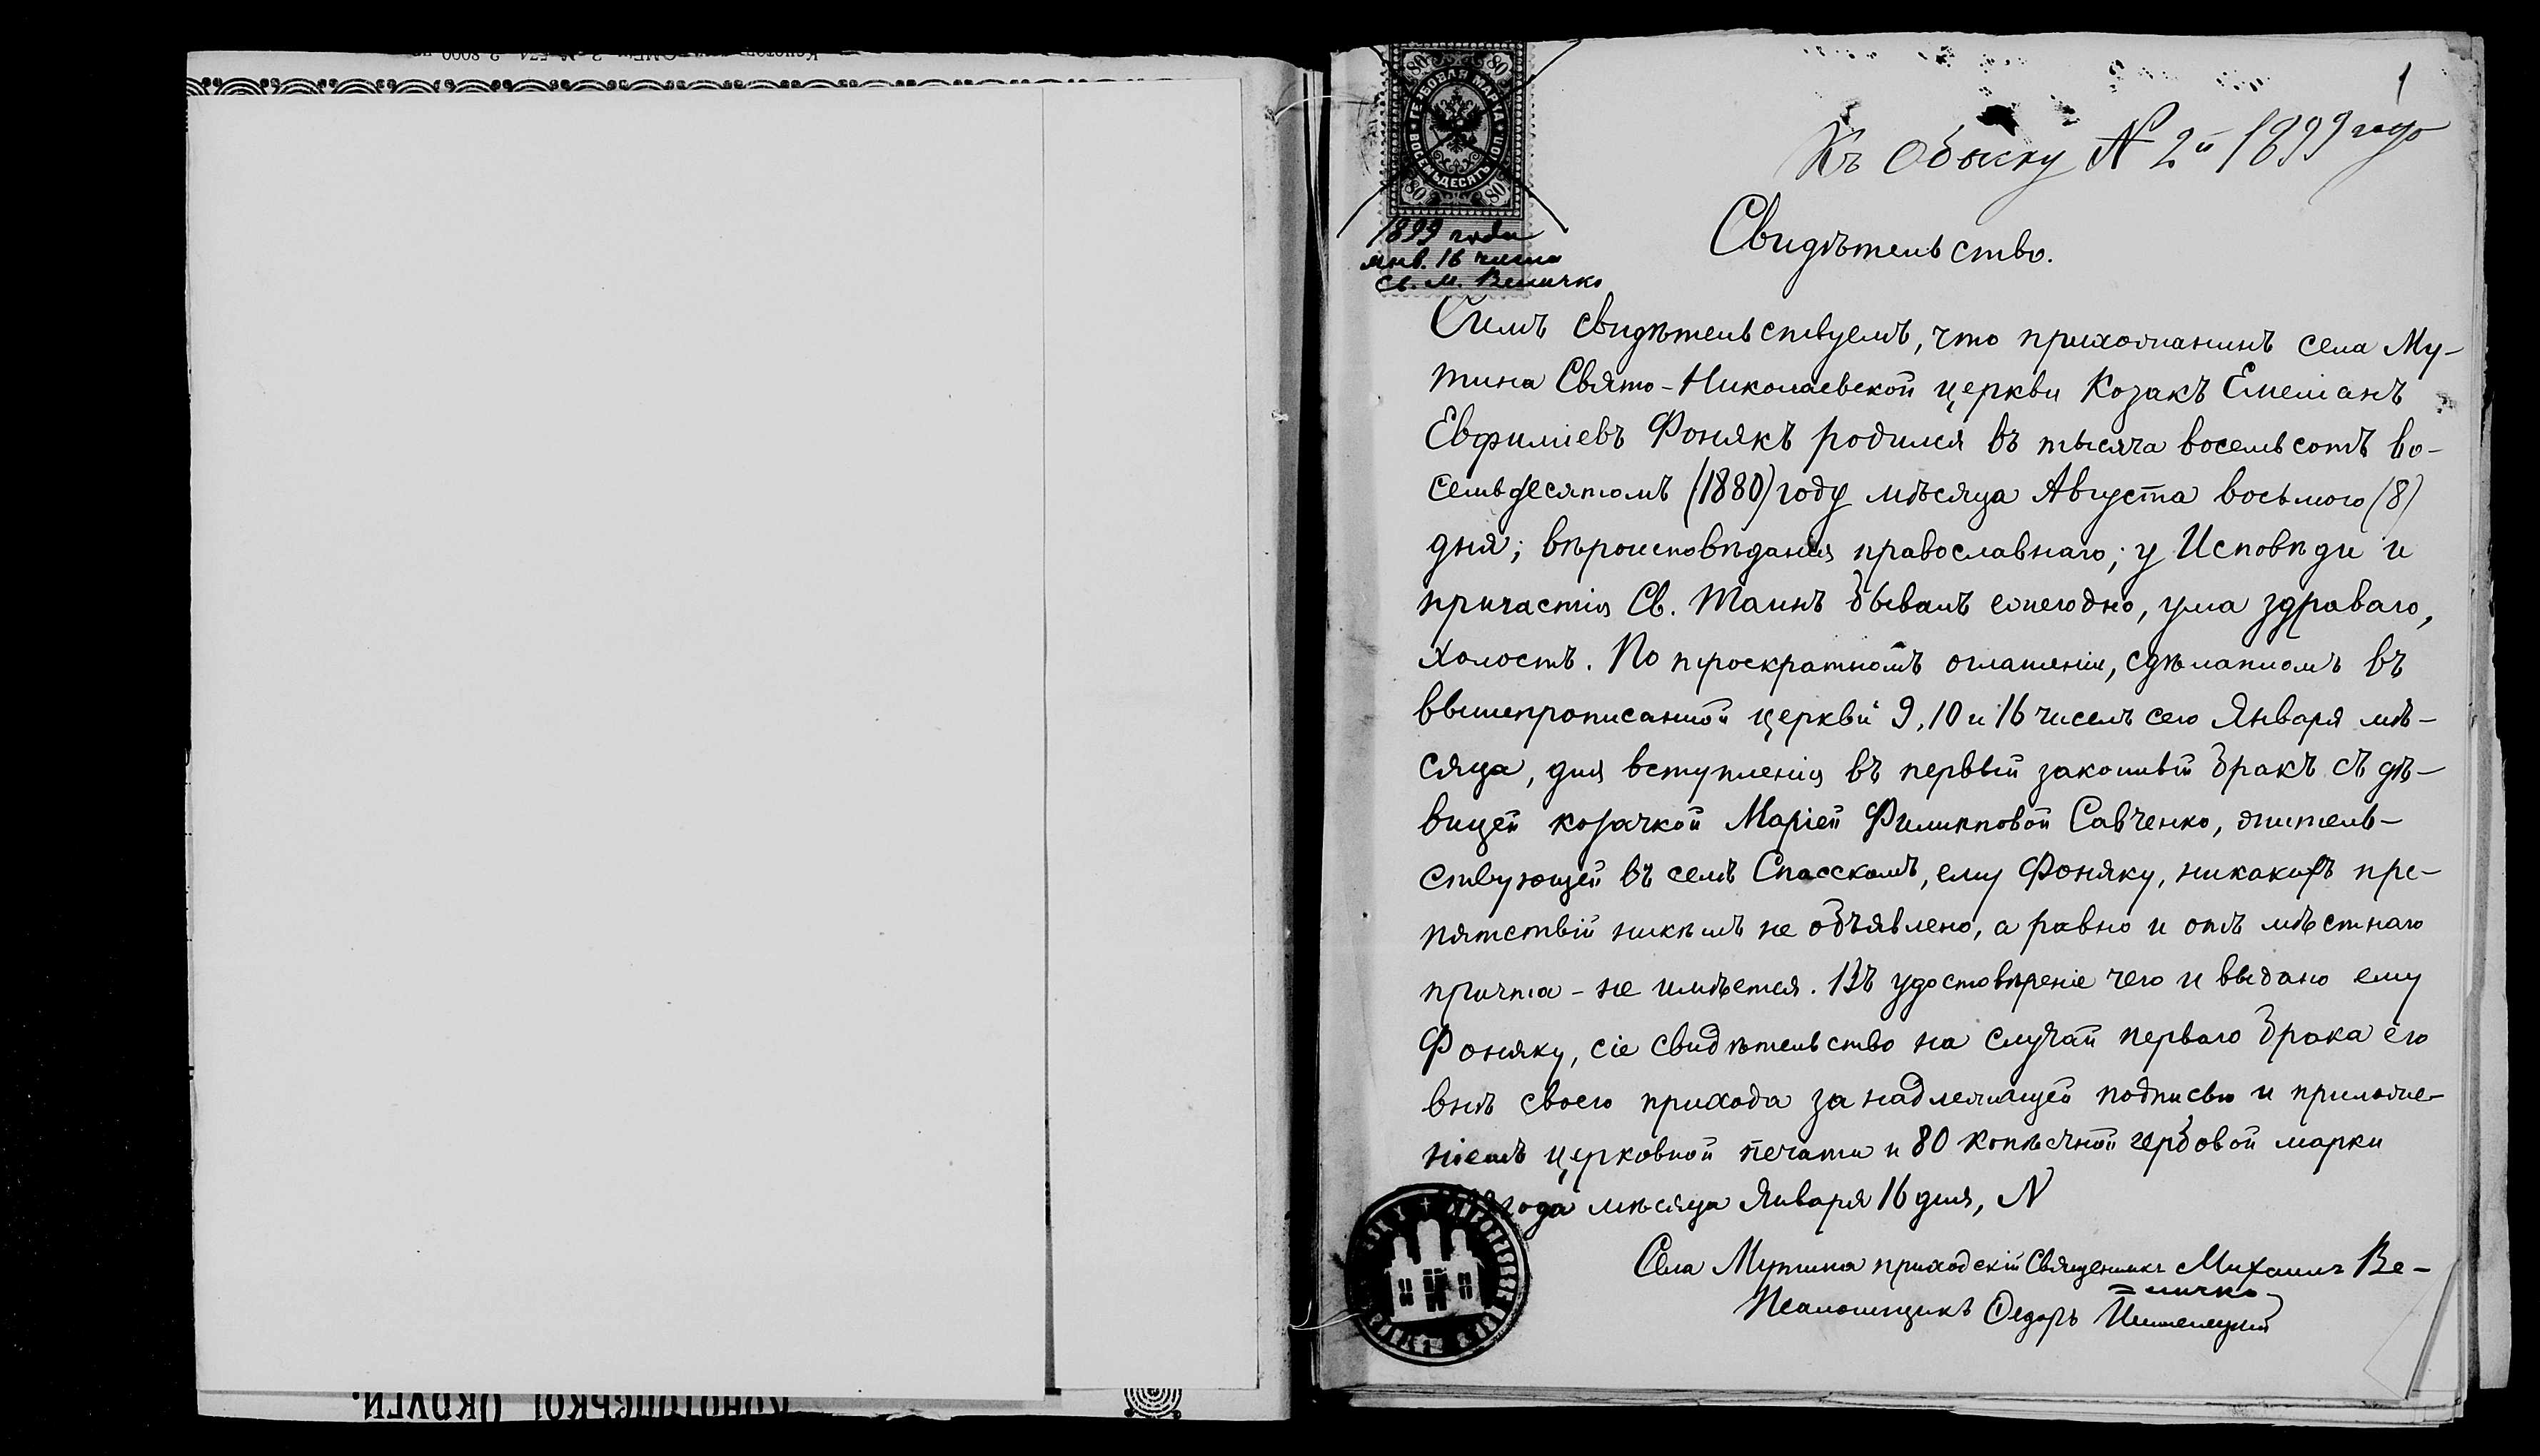 КОНОТОПСЬКОЇ ОКРУГИ.
1
Къ Обыску № 2й 1899 года
ГЕРБОВАЯ МАРКА
ВОСЕМЬДЕСЯТЪ КОП.
80 80
80 80
1899 года
янв. 16 числа
Св. М. Величко
Свидѣтельство.
Симъ свидѣтельствуемъ, что прихожанинъ села Му-
тина Свято-Николаевской церкви Козакъ Емеліанъ
Евфиміевъ Фонякъ родился въ тысяча восемьсотъ во-
семьдесятомъ (1880) году мѣсяца Августа восьмого (8)
дня; вѣроисповѣданія православнаго; у Исповѣди и
причастія Св. Таинъ бывалъ ежегодно, ума здраваго,
холостъ. По троекратномъ оглашеніи, сдѣланномъ въ
вышепрописанной церкви 9, 10 и 16 чиселъ сего Января мѣ-
сяца, для вступленія въ первый законный бракъ съ дѣ-
вицей козачкой Маріей Филипповой Савченко, житель-
ствующей въ селѣ Спасскомъ, ему Фоняку, никакихъ пре-
пятствій никѣмъ не объявлено, а равно и отъ мѣстнаго
причта - не имѣется. Въ удостовѣреніе чего и выдано ему
Фоняку, сіе свидѣтельство на случай перваго брака его
внѣ своего прихода за надлежащей подписью и приложе-
ніемъ церковной печати и 80 копѣечной гербовой марки
года мѣсяца Января 16 дня, №
Села Мутина приходскій Священникъ Михаилъ Ве-
=личко
Псаломщикъ Ѳедоръ